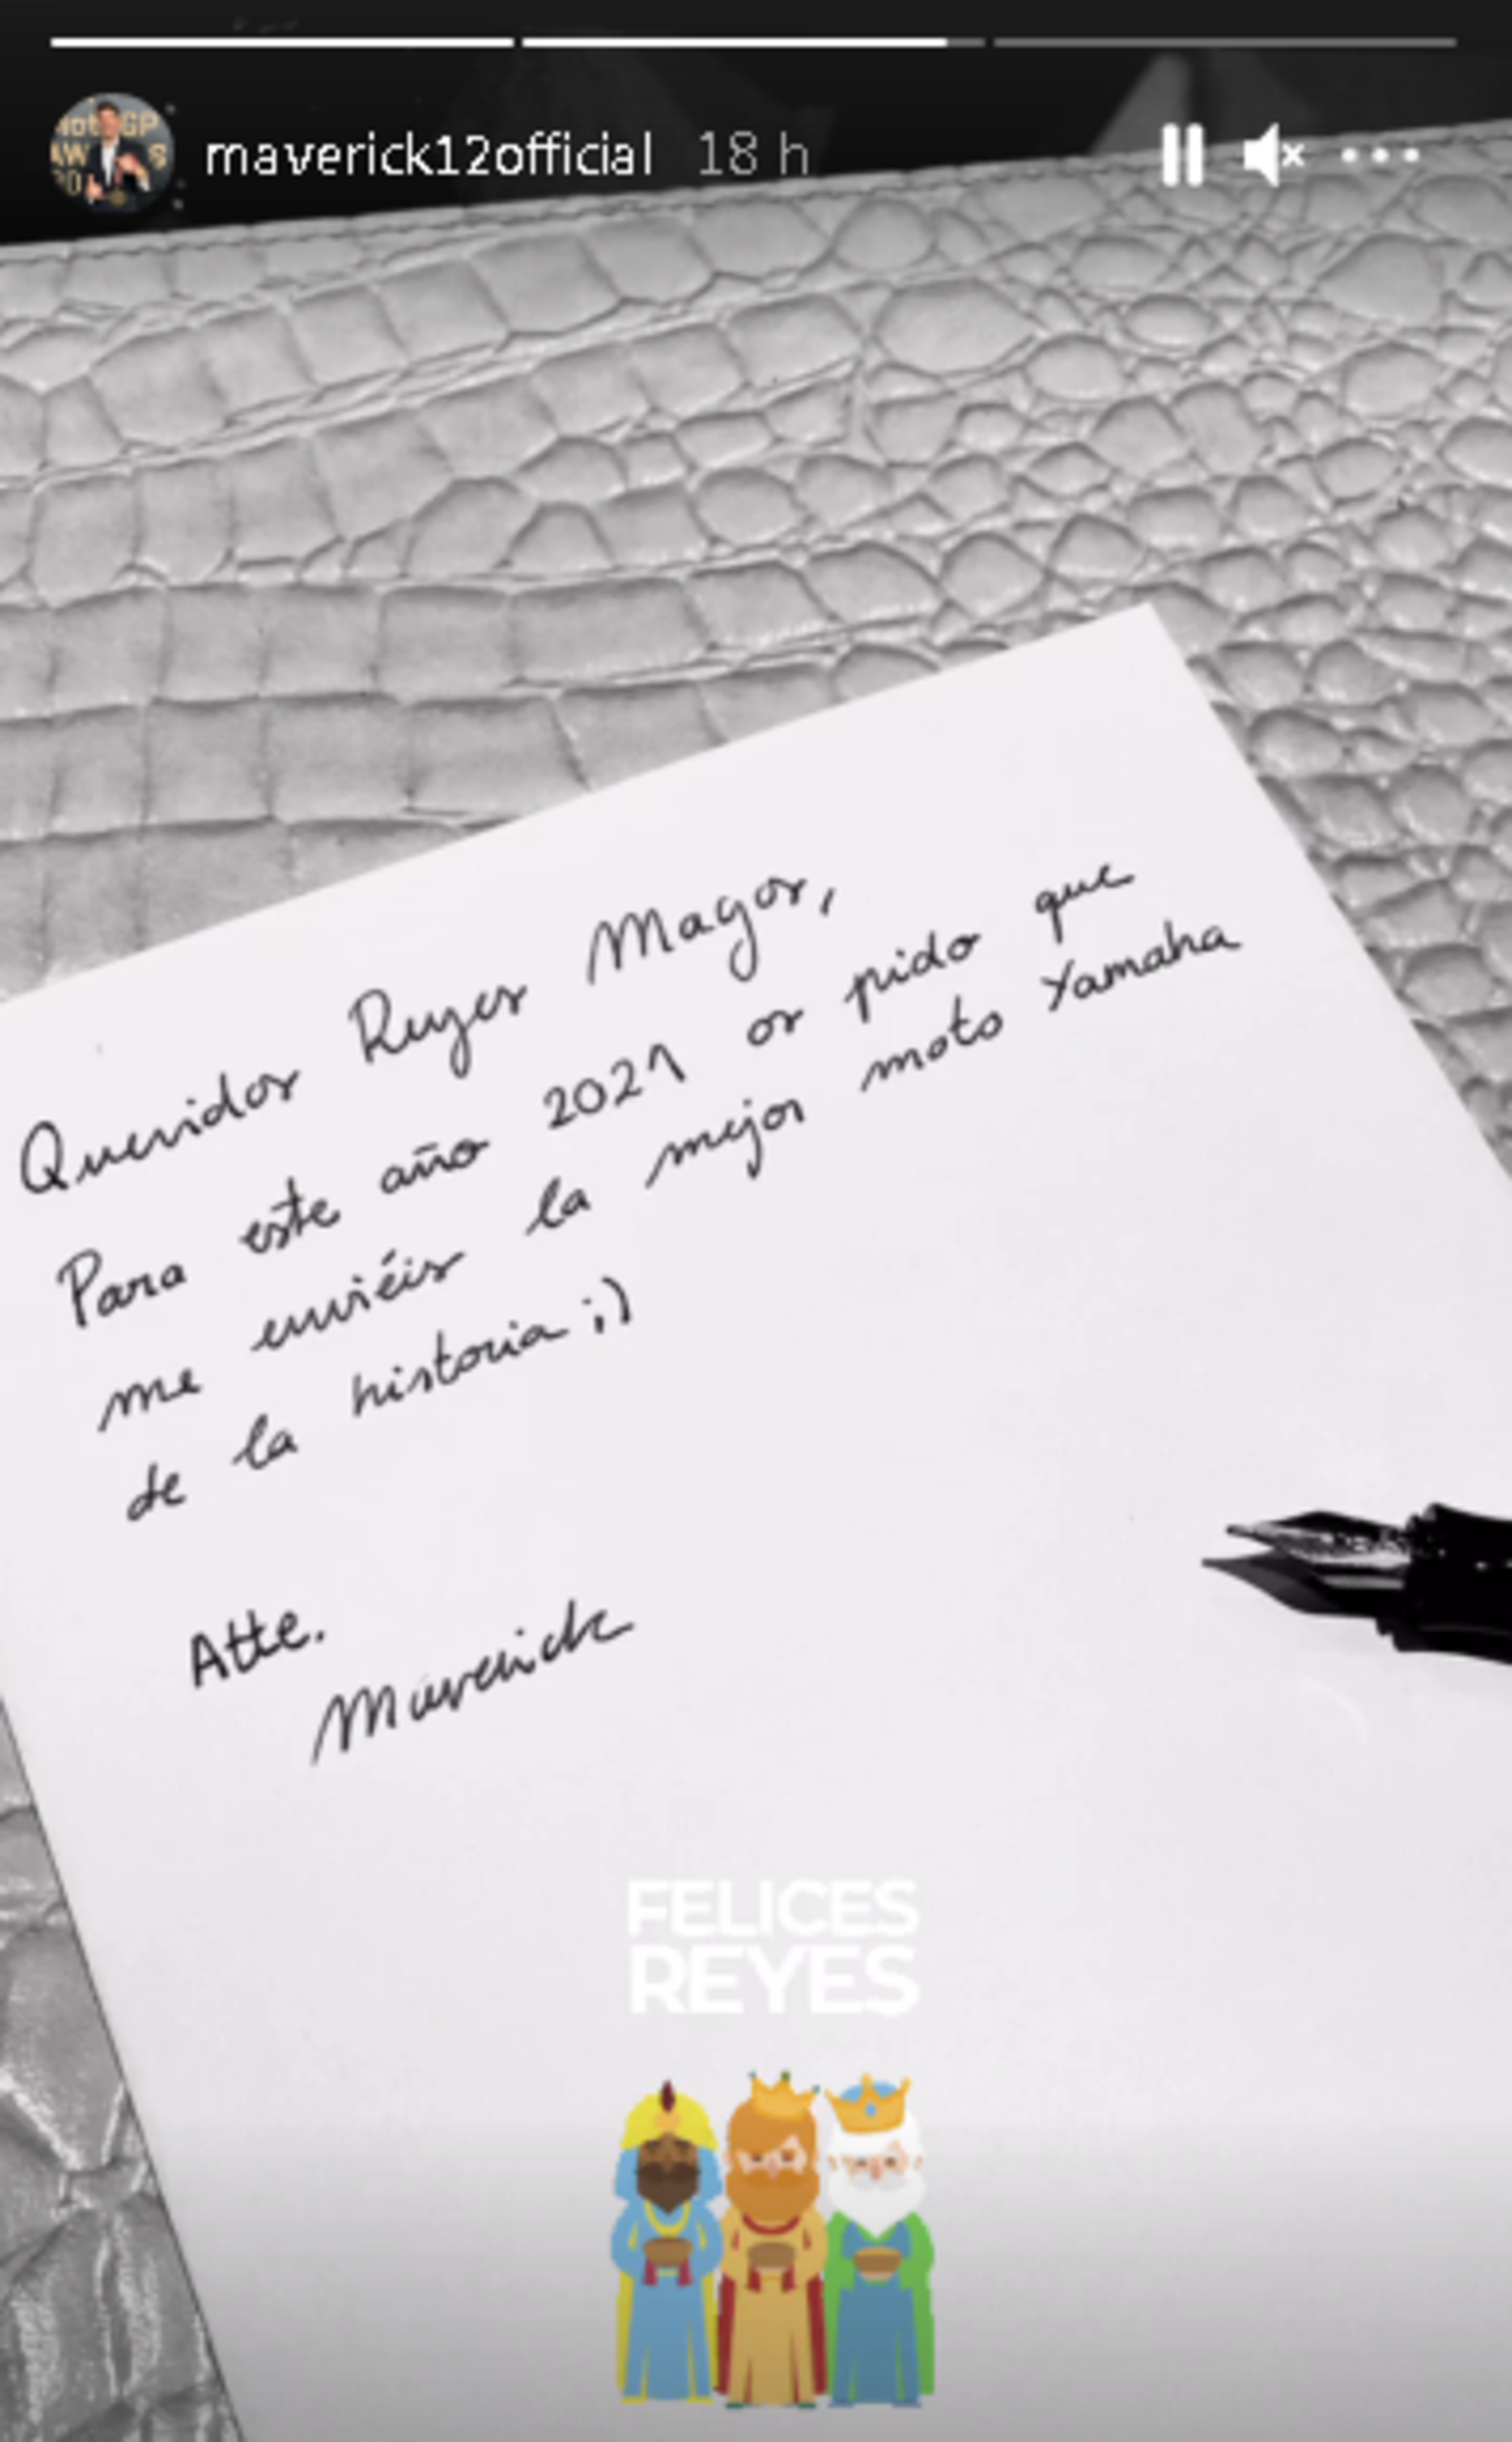 maverick12official 18 h
Queridos Reyes Magos,
Para este año 2021 os pido que
me enviéis la mejor moto Yamaha
de la historia ;)
Atte.
Maverick
FELICES
REYES